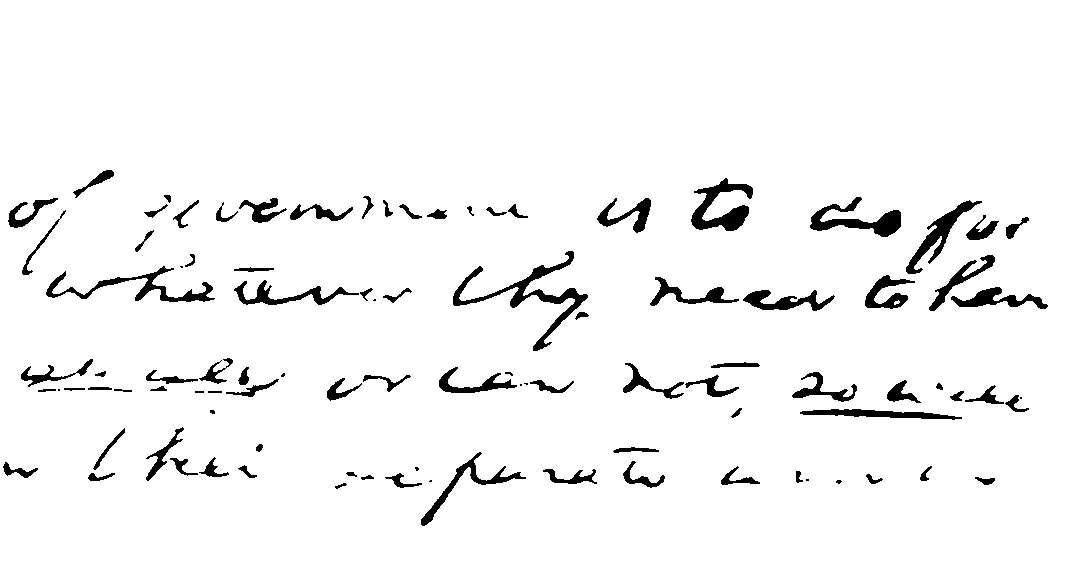 of government is to do for
whatever they need to have
at all, or can not, so well
in their separate